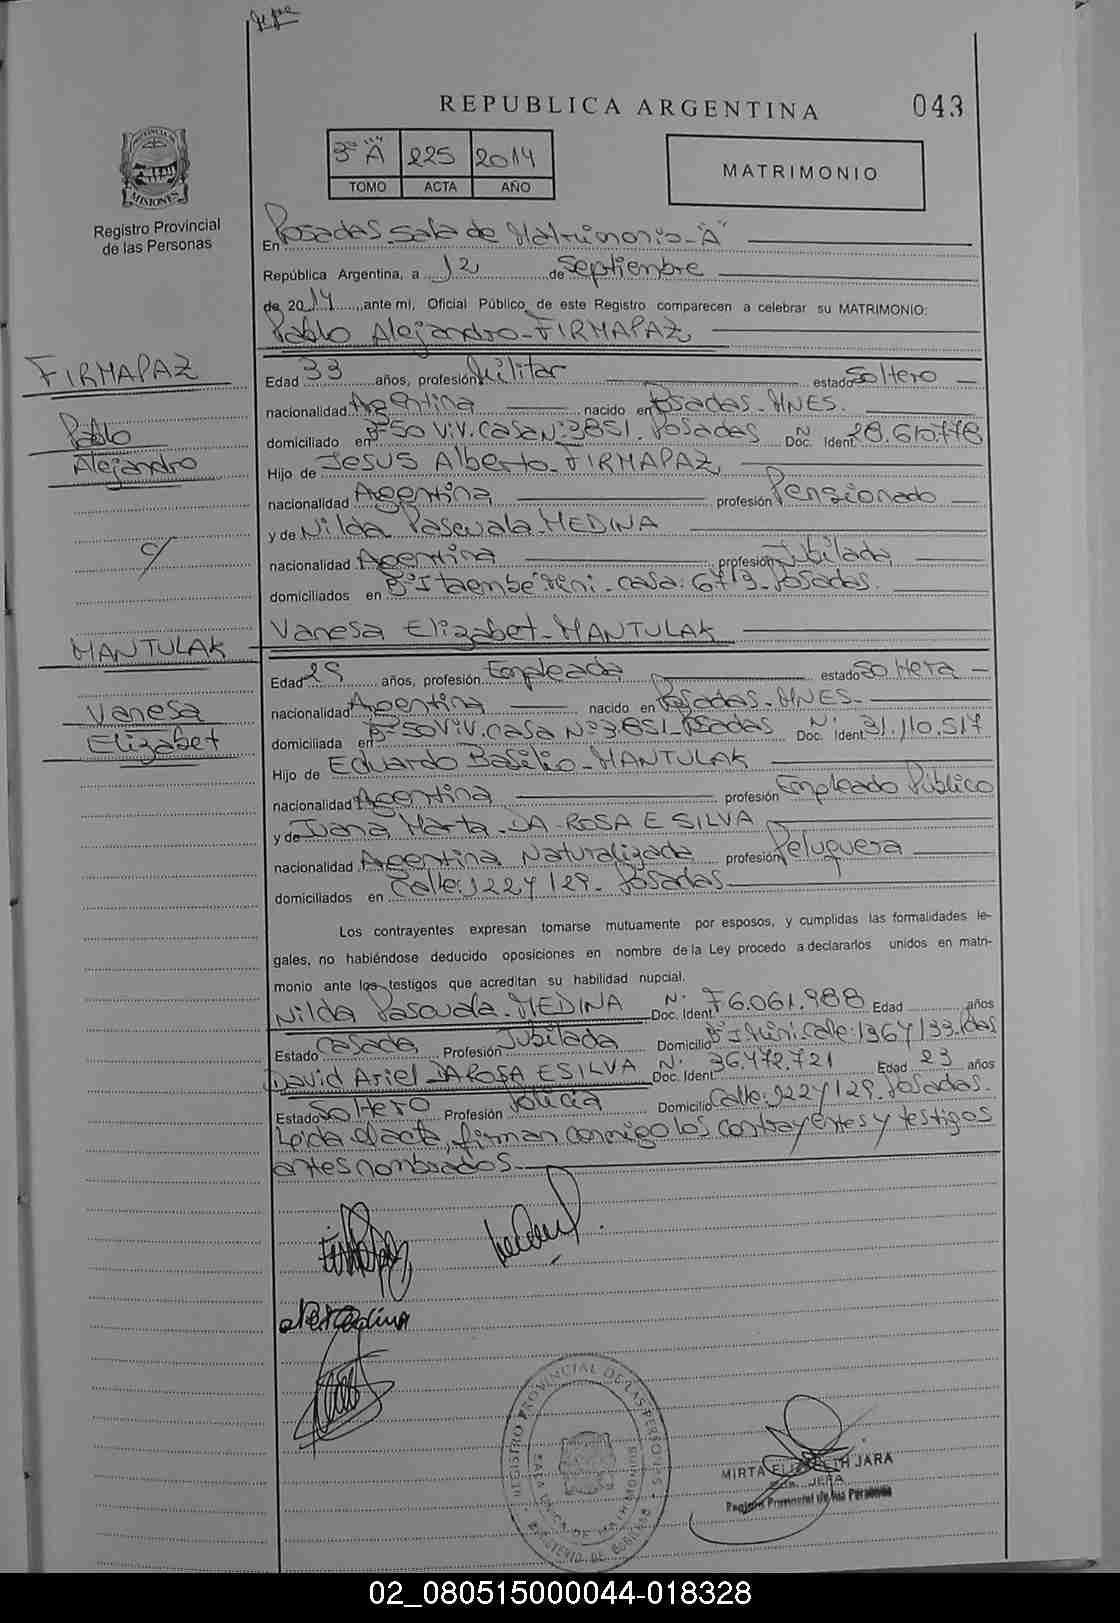 REPUBLICA ARGENTINA
043
PROVINCIA DE MISIONES
Registro Provincial
de las Personas
3º "A" 225 2014
TOMO ACTA AÑO
MATRIMONIO
En Posadas-Sala de Matrimonio-"A"
República Argentina, a 12 de Septiembre
de 2014, ante mi, Oficial Público de este Registro comparecen a celebrar su MATRIMONIO:
Pablo Alejandro-FIRMAPAZ
FIRMAPAZ
Pablo
Alejandro
c/
MANTULAK
Vanesa
Elizabet
Edad 33 años, profesión Militar estado Soltero
nacionalidad Argentina nacido en Posadas-MNES.
domiciliado en Bº 50 Viv. Casa Nº: 3851. Posadas Doc. Ident. Nº 28.610.778
Hijo de Jesus Alberto-FIRMAPAZ
nacionalidad Argentina profesión Pensionado
y de Nilda Pascuala-MEDINA
nacionalidad Argentina profesión Jubilada
domiciliados en Bº Itaembé Mini-casa: 6713-Posadas.
Vanesa Elizabet-MANTULAK
Edad 29 años, profesión Empleada estado Soltera
nacionalidad Argentina nacido en Posadas-MNES-
domiciliada en Bº 50 Viv. Casa Nº 3851-Posadas Doc. Ident. Nº: 31.110.517
Hijo de Eduardo Basilio-MANTULAK
nacionalidad Argentina profesión Empleado Público
y de Juana Marta-DA ROSA E SILVA
nacionalidad Argentina Naturalizada profesión Peluquera
domiciliados en Calle: 122 y 129-Posadas
Los contrayentes expresan tomarse mutuamente por esposos, y cumplidas las formalidades le-
gales, no habiéndose deducido oposiciones en nombre de la Ley procedo a declararlos unidos en matri-
monio ante los testigos que acreditan su habilidad nupcial.
Nilda Pascuala-MEDINA Doc. Ident. Nº: F6.061.988 Edad años
Estado Casada Profesión Jubilada Domicilio Bº I. Mini: calle: 136 y 133. Pdas
David Ariel DA ROSA E SILVA Doc. Ident. Nº 36.472.721 Edad 23 años
Estado Soltero Profesión Policia Domicilio Calle: 122 y 129. Posadas.
Leída el acta, firman conmigo los contrayentes y testigos
antes nombrados.
Medina
REGISTRO PROVINCIAL DE LAS PERSONAS
MINISTERIO DE GOBIERNO
MIRTA ELIZABETH JARA
Registro Provincial de las Personas
02_080515000044-018328